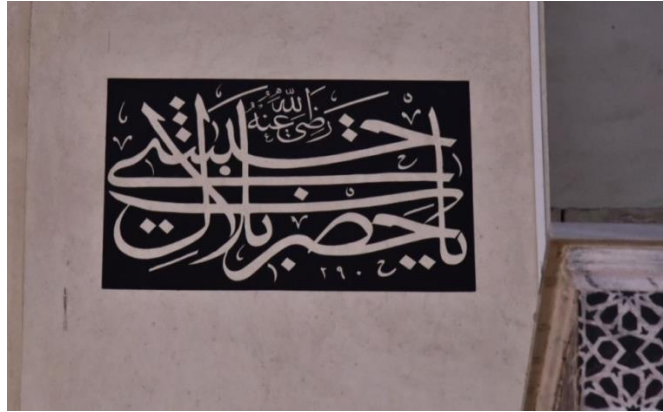 يا حضرت بلال
حبشى
رَضِيَ اللّٰهُ عَنْهُ
٢٩٠